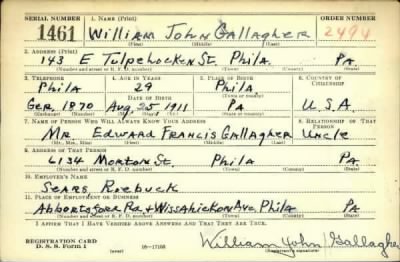 SERIAL NUMBER 1. NAME (Print) ORDER NUMBER
1461 William John Gallagher 2494
(First) (Middle) (Last)
2. ADDRESS (Print)
143 E Tulpehocken St. Phila. Pa.
(Number and street or R. F. D. number) (Town) (County) (State)
3. TELEPHONE 4. AGE IN YEARS 5. PLACE OF BIRTH 6. COUNTRY OF CITIZENSHIP
Phila 29 Phila.
DATE OF BIRTH (Town or county)
Ger, 1870 Aug, 25, 1911 Pa U.S.A.
(Exchange) (Number) (Mo.) (Day) (Yr.) (State or country)
7. NAME OF PERSON WHO WILL ALWAYS KNOW YOUR ADDRESS 8. RELATIONSHIP OF THAT PERSON
Mr. Edward Francis Gallagher Uncle
(Mr., Mrs., Miss) (First) (Middle) (Last)
9. ADDRESS OF THAT PERSON
6134 Morton St. Phila Pa
(Number and street or R. F. D. number) (Town) (County) (State)
10. EMPLOYER'S NAME
Sears Roebuck
11. PLACE OF EMPLOYMENT OR BUSINESS
Abbortsford Rd + Wissahickon Ave, Phila Pa
(Number and street or R. F. D. number) (Town) (County) (State)
I AFFIRM THAT I HAVE VERIFIED ABOVE ANSWERS AND THAT THEY ARE TRUE.
REGISTRATION CARD
D. S. S. Form 1 (over) 16—17105 William John Gallagher